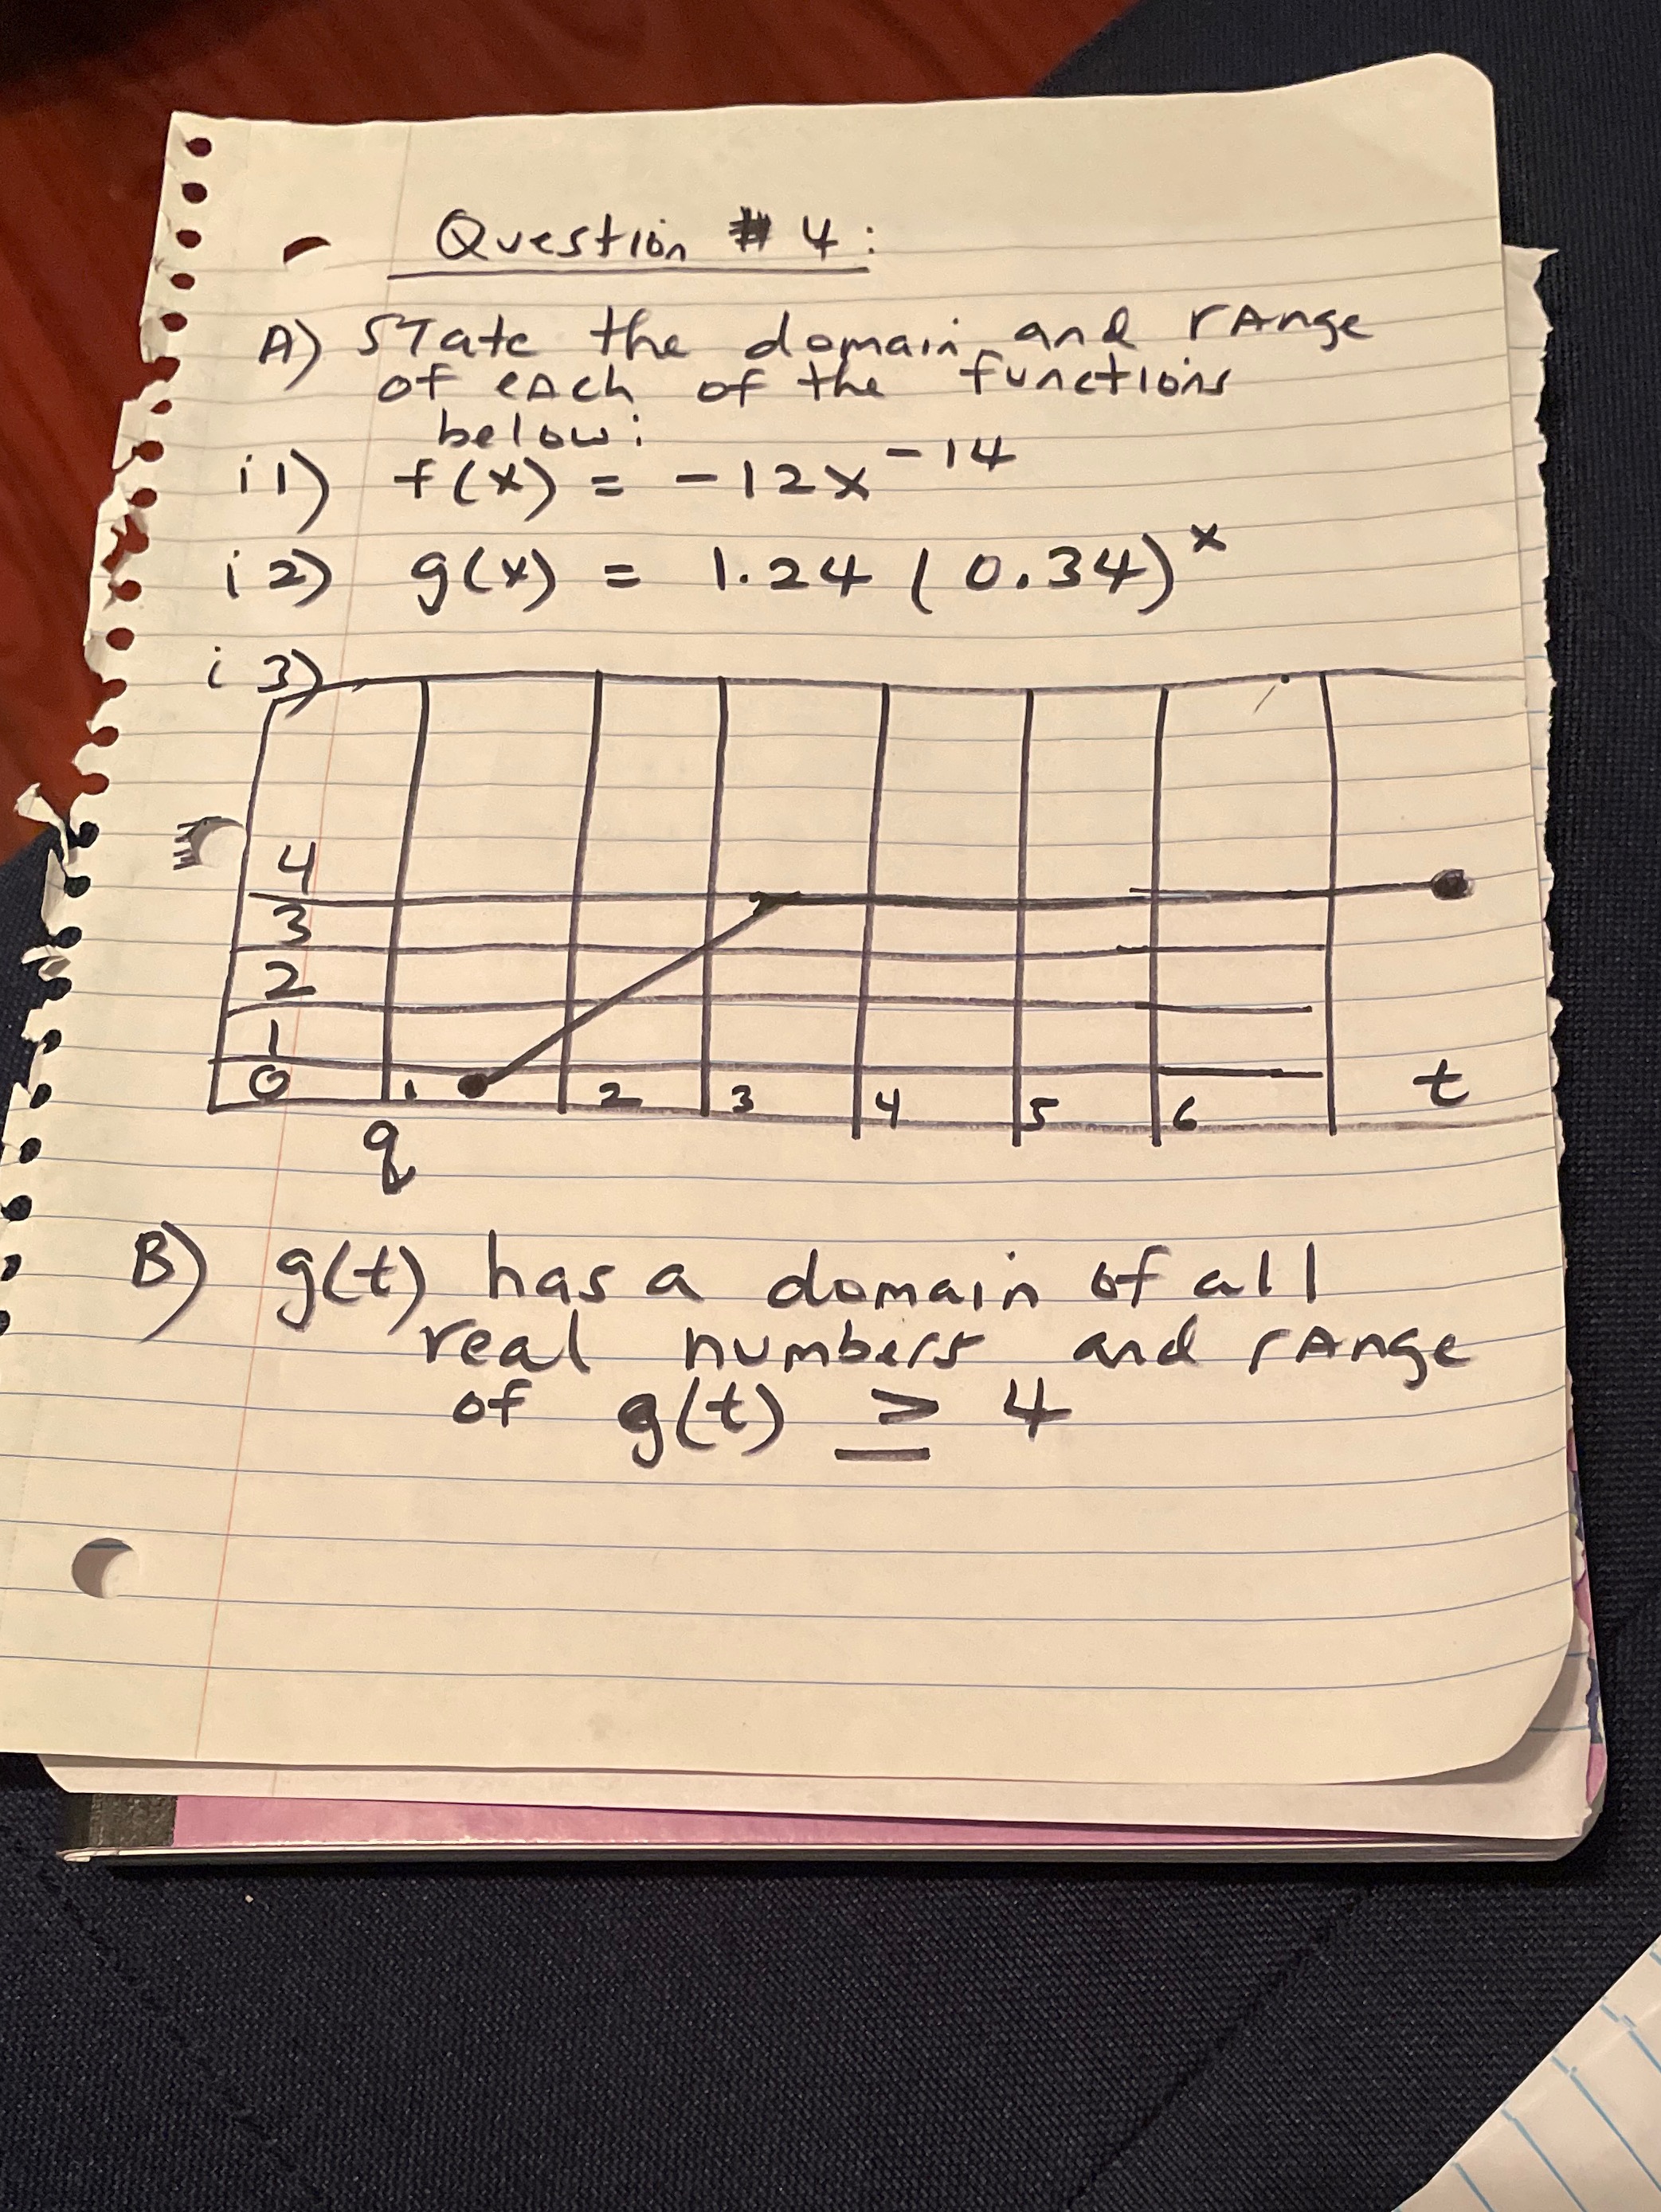 Question # 4:
A) State the domain and range
of each of the functions
below:
i1) f(x) = -12x^-14
i2) g(x) = 1.24 (0.34)^x
i3)
4
3
2
1
0 1 2 3 4 5 6 t
q
B) g(t) has a domain of all
real numbers and range
of g(t) ≥ 4